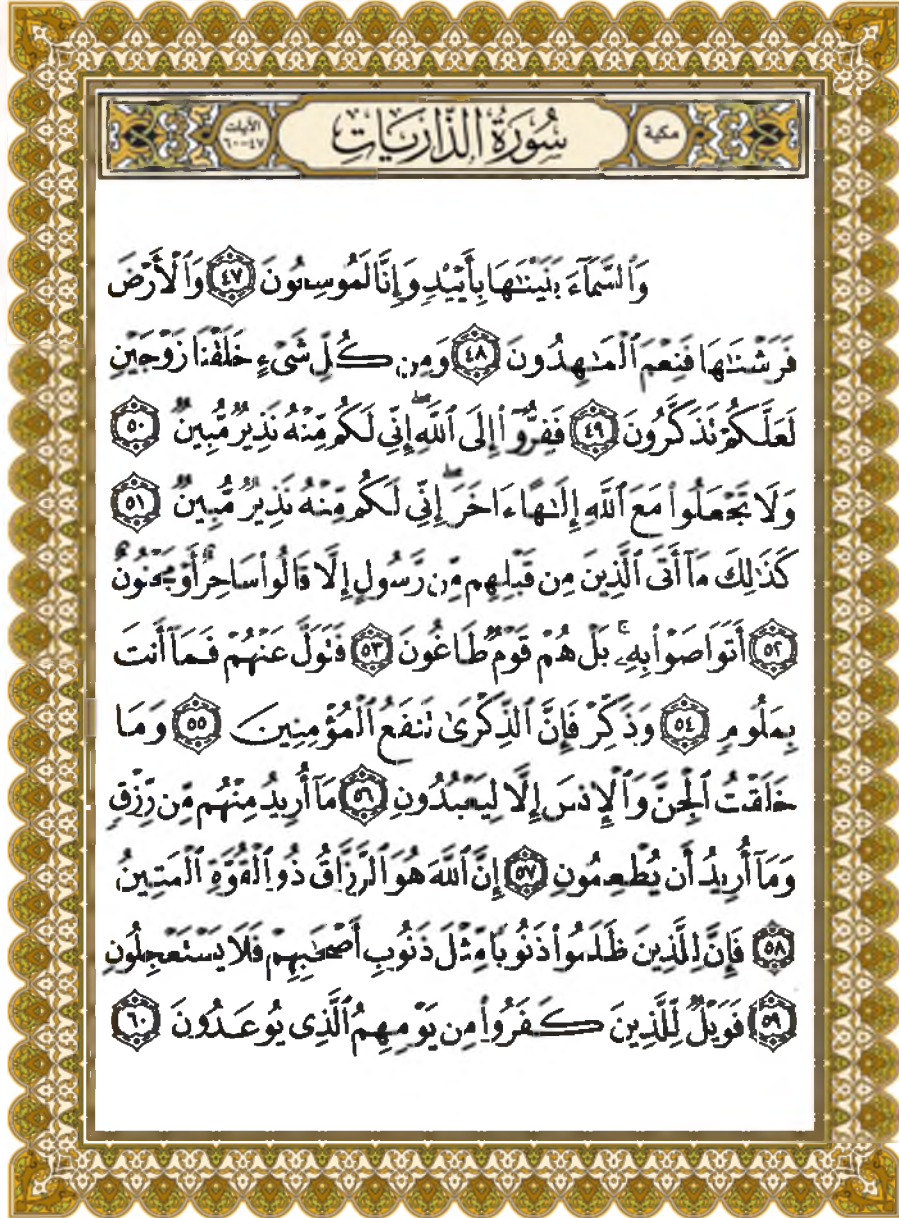 مكية
سُورَةُ الذَّارِيَاتِ
الآيات
٤٧-٦٠
وَٱلسَّمَآءَ بَنَيْنَٰهَا بِأَيْيْدٍ وَإِنَّا لَمُوسِعُونَ ٤٧ وَٱلْأَرْضَ
فَرَشْنَٰهَا فَنِعْمَ ٱلْمَٰهِدُونَ ٤٨ وَمِن كُلِّ شَىْءٍ خَلَقْنَا زَوْجَيْنِ
لَعَلَّكُمْ تَذَكَّرُونَ ٤٩ فَفِرُّوٓا۟ إِلَى ٱللَّهِ ۖ إِنِّى لَكُم مِّنْهُ نَذِيرٌ مُّبِينٌ ٥٠
وَلَا تَجْعَلُوا۟ مَعَ ٱللَّهِ إِلَٰهًا ءَاخَرَ ۖ إِنِّى لَكُم مِّنْهُ نَذِيرٌ مُّبِينٌ ٥١
كَذَٰلِكَ مَآ أَتَى ٱلَّذِينَ مِن قَبْلِهِم مِّن رَّسُولٍ إِلَّا قَالُوا۟ سَاحِرٌ أَوْ مَجْنُونٌ
٥٢ أَتَوَاصَوْا۟ بِهِۦ ۚ بَلْ هُمْ قَوْمٌ طَاغُونَ ٥٣ فَتَوَلَّ عَنْهُمْ فَمَآ أَنتَ
بِمَلُومٍ ٥٤ وَذَكِّرْ فَإِنَّ ٱلذِّكْرَىٰ تَنفَعُ ٱلْمُؤْمِنِينَ ٥٥ وَمَا
خَلَقْتُ ٱلْجِنَّ وَٱلْإِنسَ إِلَّا لِيَعْبُدُونِ ٥٦ مَآ أُرِيدُ مِنْهُم مِّن رِّزْقٍ
وَمَآ أُرِيدُ أَن يُطْعِمُونِ ٥٧ إِنَّ ٱللَّهَ هُوَ ٱلرَّزَّاقُ ذُو ٱلْقُوَّةِ ٱلْمَتِينُ
٥٨ فَإِنَّ لِلَّذِينَ ظَلَمُوا۟ ذَنُوبًا مِّثْلَ ذَنُوبِ أَصْحَٰبِهِمْ فَلَا يَسْتَعْجِلُونِ
٥٩ فَوَيْلٌ لِّلَّذِينَ كَفَرُوا۟ مِن يَوْمِهِمُ ٱلَّذِى يُوعَدُونَ ٦٠